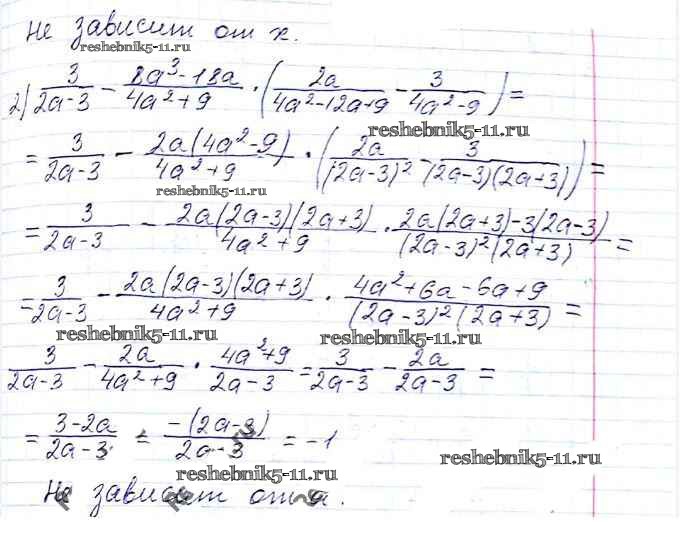 не зависит от x.
reshebnik5-11.ru
2) 3/(2a-3) - (8a³-18a)/(4a²+9) · (2a/(4a²-12a+9) - 3/(4a²-9)) =
reshebnik5-11.ru
= 3/(2a-3) - 2a(4a²-9)/(4a²+9) · (2a/(2a-3)² - 3/((2a-3)(2a+3))) =
reshebnik5-11.ru
= 3/(2a-3) - 2a(2a-3)(2a+3)/(4a²+9) · (2a(2a+3)-3(2a-3))/((2a-3)²(2a+3)) =
= 3/(2a-3) - 2a(2a-3)(2a+3)/(4a²+9) · (4a²+6a-6a+9)/((2a-3)²(2a+3)) =
reshebnik5-11.ru reshebnik5-11.ru
3/(2a-3) - 2a/(4a²+9) · (4a²+9)/(2a-3) = 3/(2a-3) - 2a/(2a-3) =
= (3-2a)/(2a-3) = -(2a-3)/(2a-3) = -1
reshebnik5-11.ru
reshebnik5-11.ru
Не зависит от a.